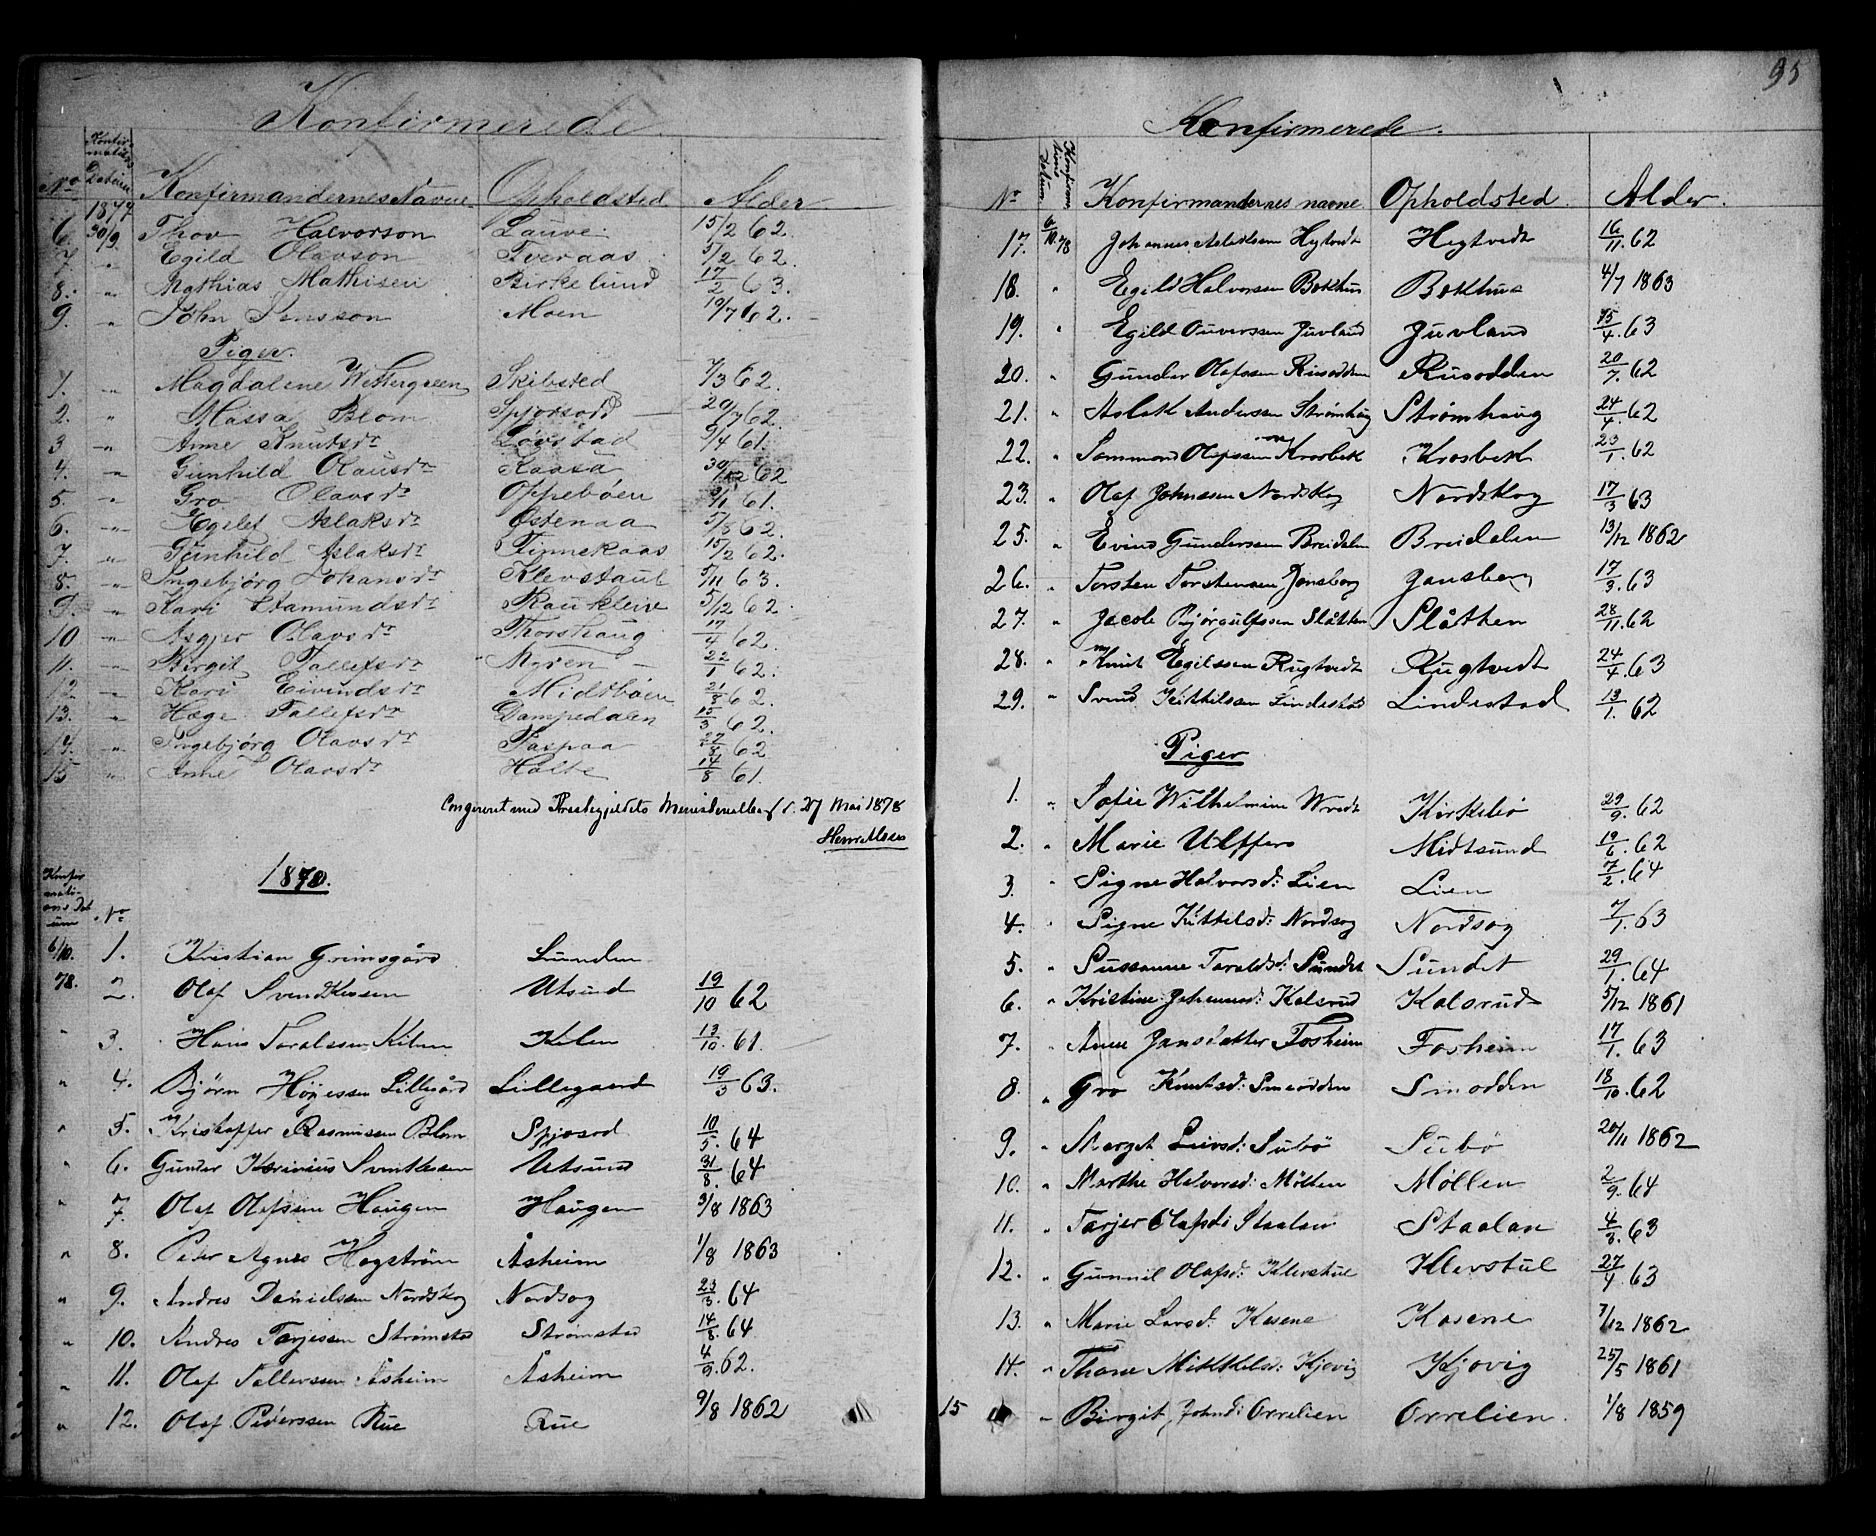 Konfirmerede.
No Konfirmations Datum Konfirmandernes Navne Opholdsted Alder
1877
6. 30/9. Thov Halvorson Lauve 15/2 62.
7. " Egild Olavson Tveraas 5/2 62.
8. " Mathias Mathisen Birkelund 17/2 63.
9. " John Jensson Moen 19/7 62.
Piger.
1. " Magdalene Wettergreen Skibsted 7/3 62.
2. " Massa Blom Spjosod 20/7 62.
3 " Anne Knutsdr Løvstad 9/4 61.
4. " Gunhild Olausdr Kaasa 30/12 62
5. " Gro Olavsdr Oppebøen 61.
6. " Egelet Aslaksdr Østenaa 5/8 62.
7. " Gunhild Aslaksdr Finnekaas 15/2 62.
8. " Ingebjørg Johansdr Klevstaul 5/11 63.
9. " Kari Aamundsdr Raukleive 5/12 62.
10 " Asgjer Olavsdr Thorshaug 17/4 62.
11. " Birgit Tallefsdr Myren 22/1 62.
12 " Kari Eivindsdr Midtbøen 21/8 62.
13. " Hæge Tallefsdr Dampedalen 15/3 62.
14. " Ingebjørg Olavsdr Taspaa 62
15 " Anne Olavsdr Holte 14/8 61.
Confereret med Præstegjeldets Ministerialbog d. 27 Mai 1878
1878.
Konfirmations Datum No
6/10. 1. Kristian Grimsgård Lunden
78. 2. Olof Svendksen Utsund 19/10 62
" 3. Hans Taralssen Kilen Kilen 13/10. 61.
" 4. Bjørn Høyessen Lillegård Lillegaard 19/3 63.
" 5. Kristoffer Rasmussen Blom Spjosod 10/5. 64
" 6. Gunder Severinius Sventksen Utsund 31/8. 64
" 7. Olaf Olafssen Haugen Haugen 3/8 1863
" 8. Peter Agnes Hagstrøm Åsheim 1/8 1863
" 9. Andres Danielsen Nordskog Nordsog 23/3. 64
" 10. Andres Tarjessen Strømstad Strømstad 14/8. 64
" 11. Olaf Tallerssen Åsheim Åsheim 4/9. 62.
" 12. Olaf Pederssen Rue Rue 9/8 1862
95
Konfirmerede.
Nr Konfirmations datum Konfirmandernes navne Opholdsted Alder.
17. 6/10. 78 Johannes Aslaksen Hegtvedt Hegtvedt 16/11 62
18. " Egild Halvorsen Bekhus Bekhus 4/7 1863
19. " Egild Ouverssen Juvland Juvland 15/4. 63
20. " Gunder Olafssen Riusodden Riusodden 20/7. 62
21. " Aslak Anderssen Strømhaug Strømhaug 24/4. 62
22. " Sammond Olafssen Krosbek Krosbek 23/1. 62
23. " Olaf Johnssen Nordskog Nordskog 17/3 63
25. " Evind Gundersen Breidalen Breidalen 13/12 1862
26. " Torsten Torstensen Jonsberg Jonsberg 17/3. 63
27. " Jacob Bjørgulfssen Slåtten Slåtten 28/11. 62
28. " Knut Egilssen Rugtvedt Rugtvedt 24/4. 63
29. " Svend Kittilssen Lindestad Lindestad 13/1. 62
Piger
1. " Sofie Wilhelmine Wredt Kirkebø 29/9. 62
2. " Marie Ulffers Midtsund 19/6. 62
3. " Signe Halvorsd: Lien Lien 7/2. 64
4. " Signe Kittelsd: Nordsog Nordsog 7/1. 63
5. " Sussanne Taraldsd: Sundet Sundet 29/1. 64
6. " Kristine Johannesd: Kolsrud Kolsrud 5/12 1861
7. " Anne Jansdatter Fosheim Fosheim 17/1. 63
8. " Gro Knutsd: Smeodden Smodden 18/10. 62
9. " Marget Leivsd: Subø Subø 20/11 1862
10. " Marthe Halvorsd: Møllen Møllen 2/9. 64
11. " Tarjer Olafsd: Staalan Staalan 4/3. 63
12. " Gunnil Olafsd: Klevstul Klevstul 27/4. 63
13. " Marie Larsd: Kasene Kasene 7/12 1862
14. " Thone Mikkelsd: Kjovig Kjovig 25/5 1861
15 " Birgit Johnsd: Orrelien Orrelien. 1/8 1859